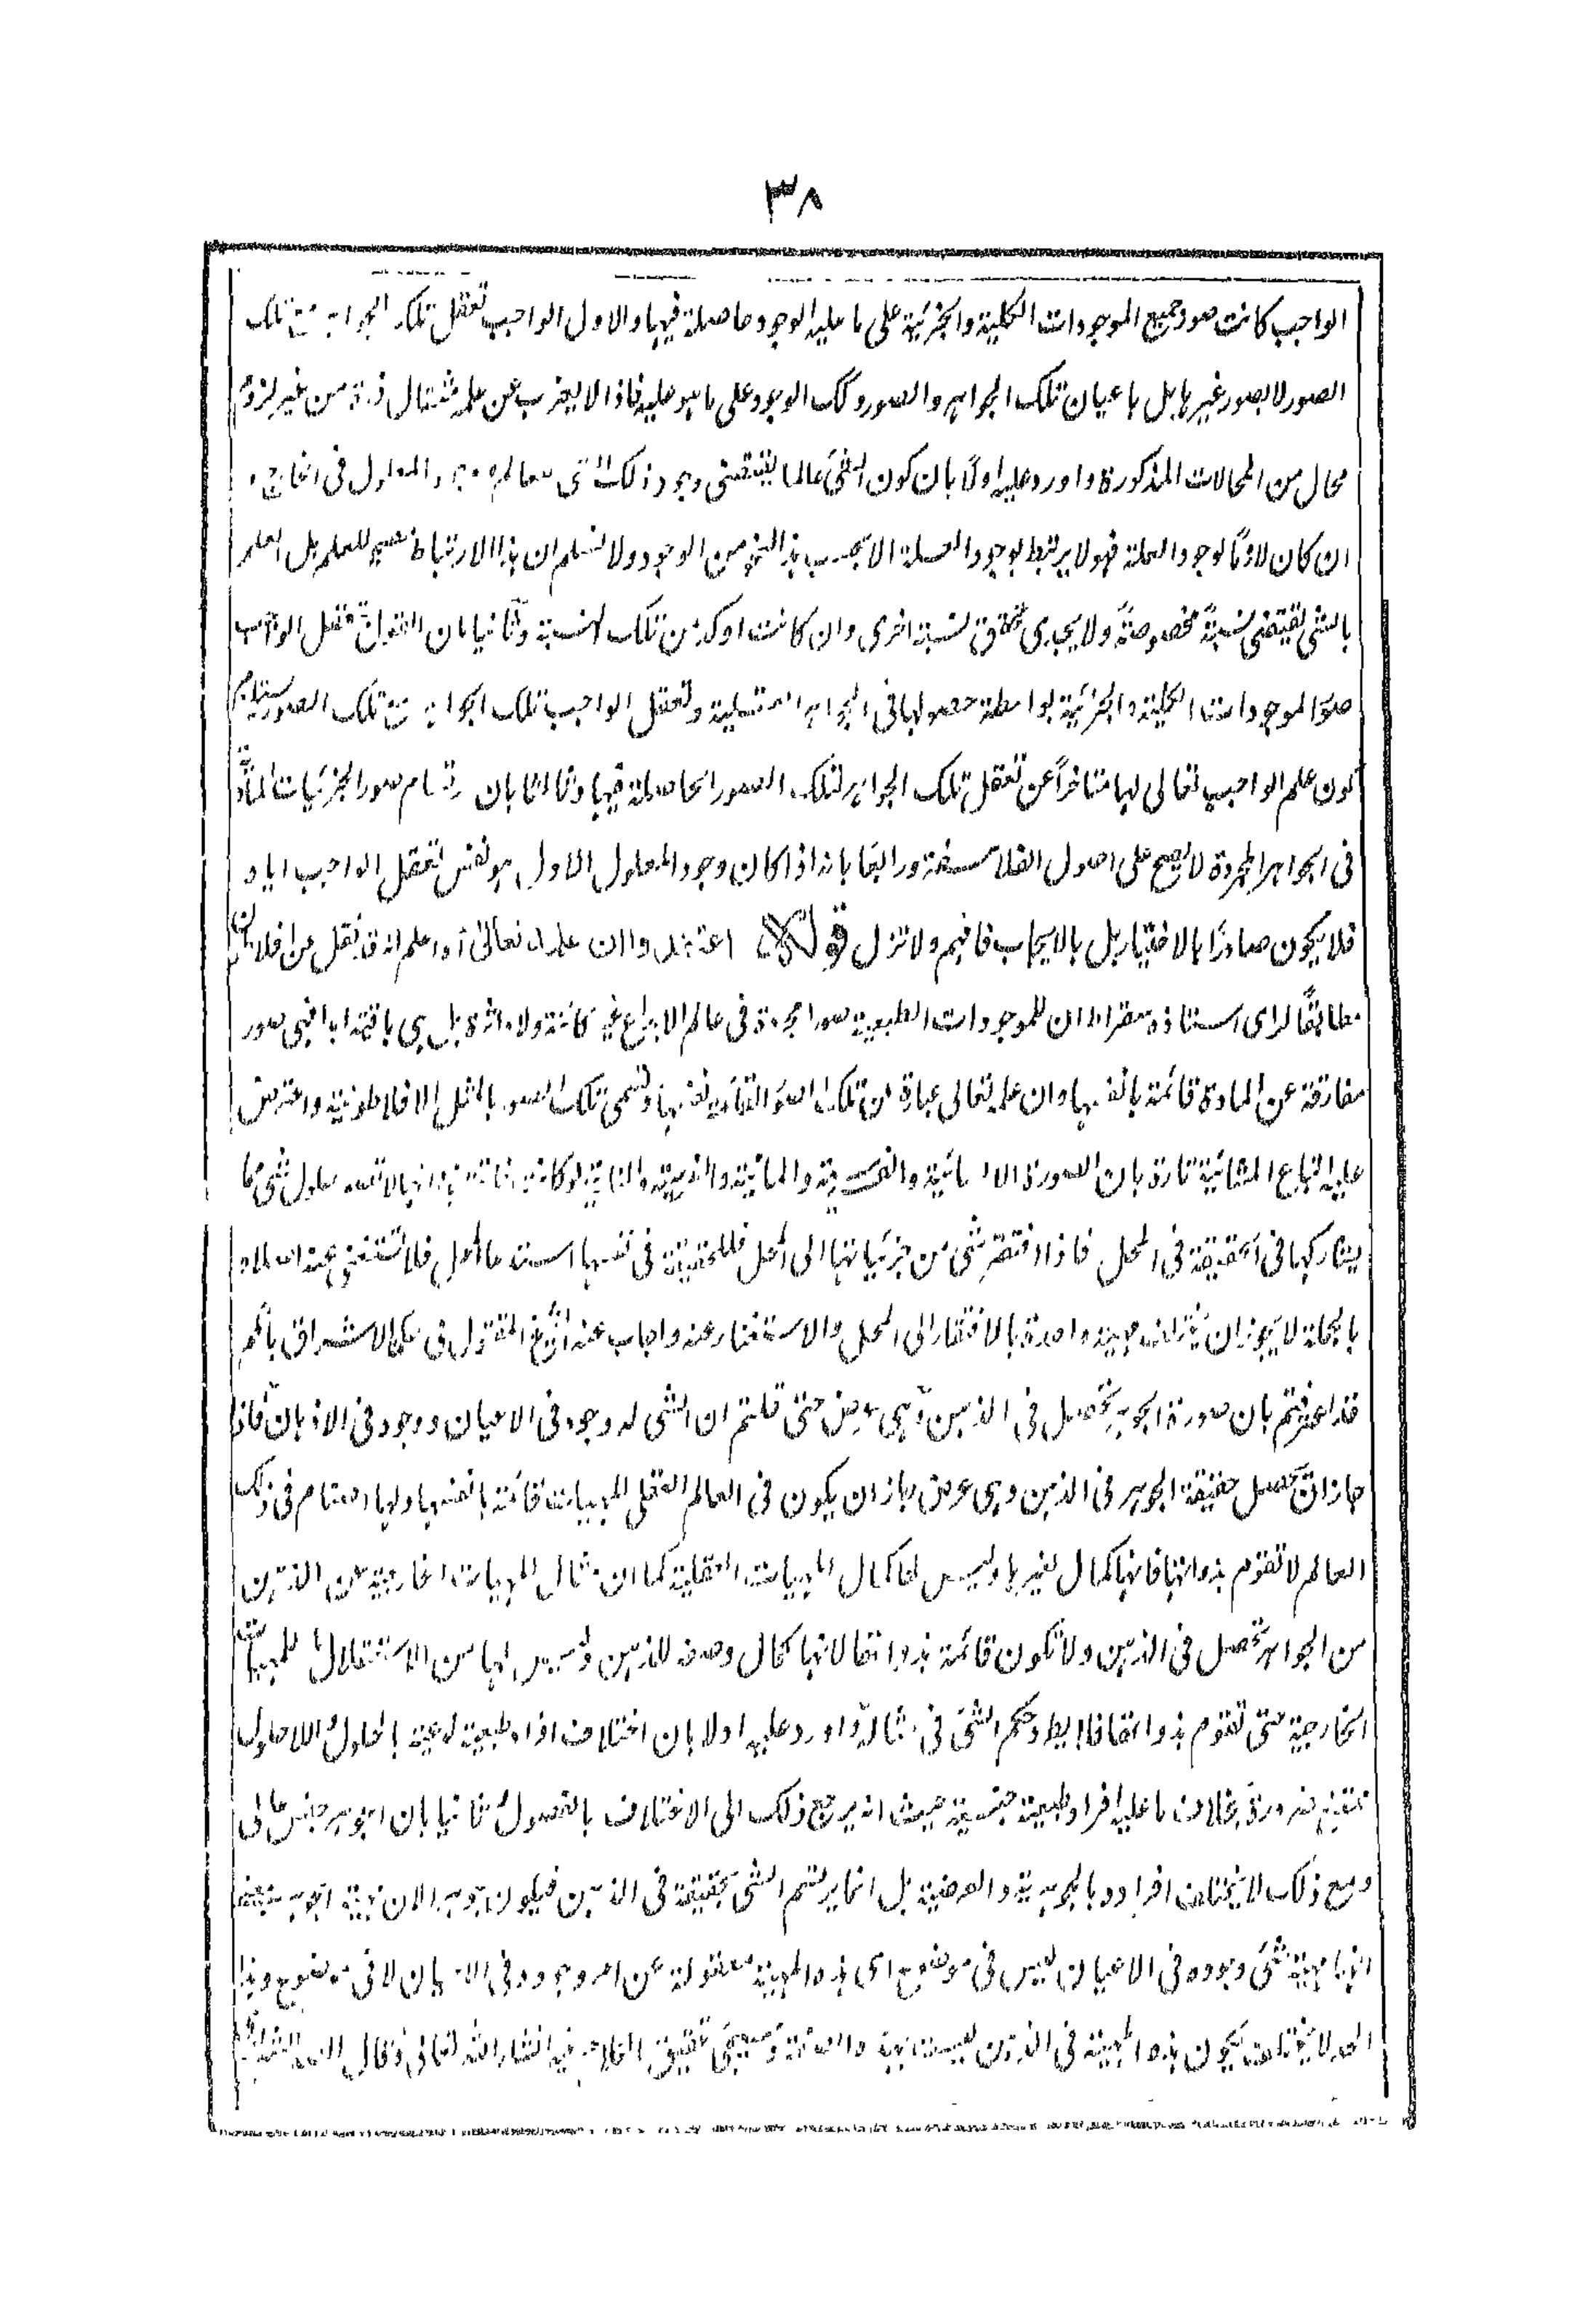 ٣٨
الواجب كانت صور جميع الموجودات الكلية والجزئية على ما عليه الوجود حاصلة فيها والاول الواجب تعقل تلك الجواهر مع تلك
الصور لا بصور غيرها بل باعيان تلك الجواهر والصور وكك الوجود على ما هو عليه فاذا لا يعزب عن علمه مثقال ذرة من غير لزوم
محال من المحالات المذكورة واورد عليه اولا بان كون الشئ عالما يقتضى وجود ذلك الشئ للعالم ووجود المعلول فى الخارج و
ان كان لازما لوجود العلة فهو لا يرتبط بوجود العلة الا بحسب هذا النحو من الوجود ولا نسلم ان هذا الارتباط مصحح للعلم بل العلم
بالشئ يقتضى نسبة مخصوصة ولا يجدى تحقق نسبة اخرى وان كانت اوكد من تلك النسبة وثانيا بان القول بتعقل الواجب
صور الموجودات الكلية والجزئية بواسطة حصولها فى الجواهر العقلية وتعقل الواجب تلك الجواهر مع تلك الصور يستلزم
كون علم الواجب تعالى بها متاخرا عن تعقل تلك الجواهر لتلك الصور الحاصلة فيها وثالثا بان ارتسام صور الجزئيات المادية
فى الجواهر المجردة لا يصح على اصول الفلاسفة ورابعا بانه اذا كان وجود المعلول الاول هو نفس تعقل الواجب اياه
فلا يكون صادرا بالاختيار بل بالايجاب فافهم ولا تزل قوله اعتقدوا ان علمه تعالى آه اعلم انه قد نقل عن افلاطون
مطابقا لراى استاذه سقراط ان للموجودات الطبعية صورا مجردة فى عالم الابداع غير كائنة ولا داثرة بل هى باقية ابدا فهى صور
مفارقة عن المادة قائمة بانفسها وان علمه تعالى عبارة عن تلك الصور القائمة بنفسها وتسمى تلك الصور بالمثل الافلاطونية واعترض
عليه اتباع المشائية تارة بان الصورة الانسانية والفرسية والمائية والنارية لو كانت قائمة بذاتها لا تتصور حلول شئ مما
يشاركها فى الحقيقة فى المحل فاذا افتقر شئ من جزئياتها الى المحل فللحقيقة فى نفسها استدعاء المحل فلا تستغنى عنه اصلا و
بالجملة لا يجوز ان يختلف مهية واحدة بالافتقار الى المحل والاستغناء عنه واجاب عنه الشيخ المقتول فى حكمة الاشراق بانكم
قد اعترفتم بان صورة الجوهر تحصل فى الذهن وهى عرض حتى قلتم ان الشئ له وجود فى الاعيان ووجود فى الاذهان فاذا
جاز ان تحصل حقيقة الجوهر فى الذهن وهى عرض جاز ان يكون فى العالم العقلى المهيات قائمة بانفسها ولها اصنام فى ذلك
العالم لا تقوم بذواتها فانها كمال لغيرها وليس لها كمال المهيات العقلية كما ان مثال المهيات الخارجية عن الذهن
من الجواهر تحصل فى الذهن ولا تكون قائمة بذواتها لانها كمال وصفة للذهن وليس لها من الاستقلال ما للمهيات
الخارجية حتى تقوم بذواتها فلا يطرد حكم الشئ فى مثاله واورد عليه اولا بان اختلاف افراد طبيعة نوعية بالحلول واللاحلول
ممتنع ضرورة بخلاف ما عليه افراد طبيعة جنسية حيث انه يرجع ذلك الى الاختلاف بالفصول وثانيا بان الجوهر جنس عالى
ومع ذلك لا يختلف افراده بالجوهرية والعرضية بل انما يرتسم الشئ بحقيقة فى الذهن فيكون جوهرا لان مهية الجوهر
انها مهية شئ وجوده فى الاعيان ليس فى موضوع اى هذه المهية معقولة عن امر وجوده فى الاعيان لا فى موضوع وهذا
الحد لا يختلف بكون هذه المهية فى الذهن ليست وسيجئ تحقيق انشاء الله تعالى وقال